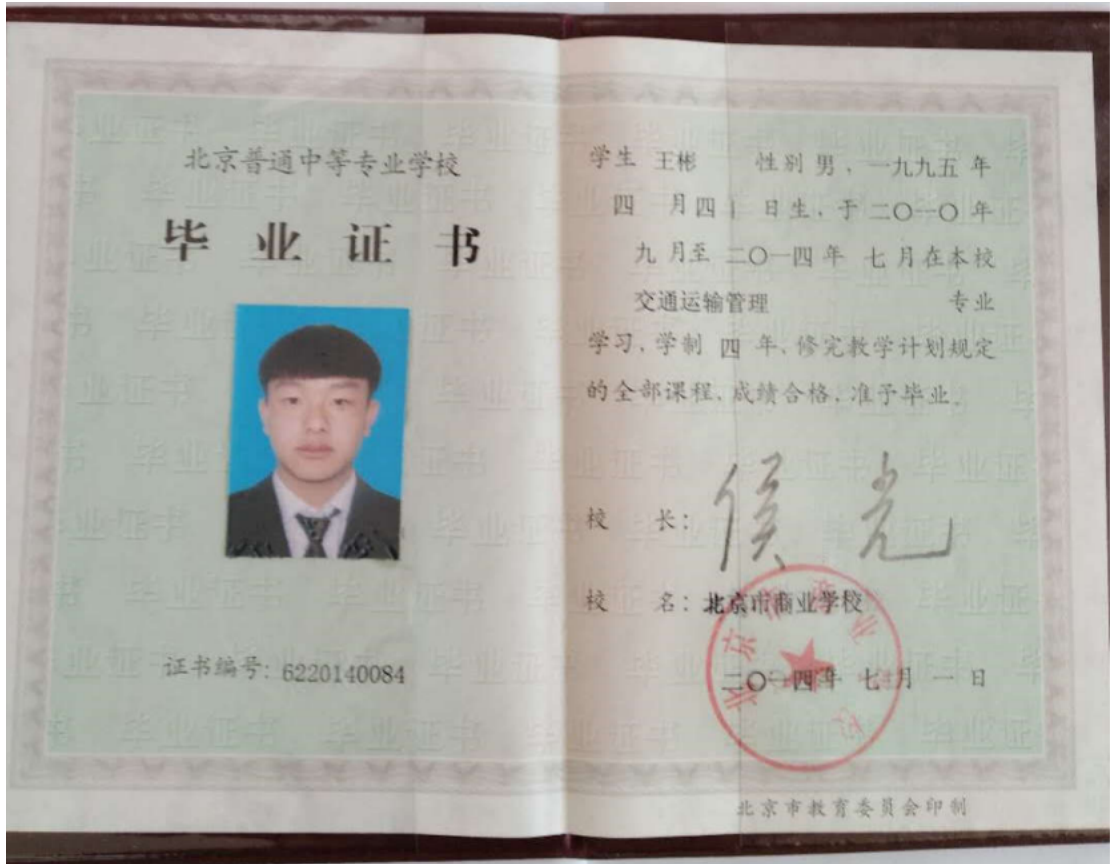 北京普通中等专业学校
毕业证书
证书编号: 6220140084
学生 王彬 性别 男, 一九九五 年
四 月四 日生, 于 二〇一〇 年
九 月至 二〇一四 年 七 月在本校
交通运输管理 专业
学习, 学制 四 年, 修完教学计划规定
的全部课程, 成绩合格, 准予毕业。
校 长: 侯光
校 名: 北京市商业学校
二〇一四年 七月 一 日
北京市教育委员会印制